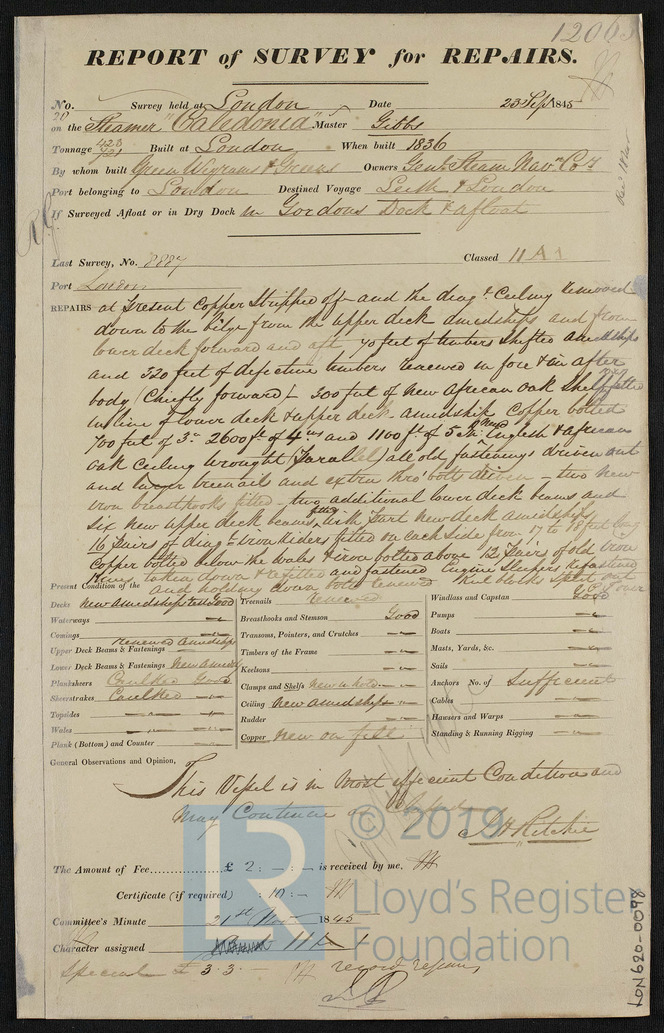 REPORT of SURVEY for REPAIRS.
No. Survey held at London Date 23 Sep 1845
on the Steamer "Caledonia" Master Gibbs
Tonnage Built at London When built 1836
By whom built Green Wigrams & Greens Owners Genl Steam Navn Coy
Port belonging to London Destined Voyage Leith & London
If Surveyed Afloat or in Dry Dock in Gordons Dock & afloat
Last Survey, No. 8887 Classed 11 A 1
Port London
REPAIRS at Present Copper Stripped off and the diagl Ceiling removed
down to the bilge from the upper deck amidships and from
lower deck forward and aft, 70 feet of timbers shifted amidships
and 320 feet of defective timbers renewed in fore & in after
body (Chiefly forward) 300 feet of new African Oak Shelf fitted
in line of lower deck & upper deck amidships Copper bolted
700 feet of 3in 2600 ft of 4ins and 1100 ft of 5 in new English & African
oak Ceiling wrought all old fastenings driven out
and larger treenails and extra thro' bolts driven - two new
iron breasthooks fitted - two additional lower deck beams and
six new upper deck beams fitted with part new deck amidships
16 Pairs of diagl iron riders fitted on each side from 17 to 18 feet long
Copper bolted below the wales & iron bolted above 12 Pairs of old iron
taken down & refitted and fastened Engine Sleepers refastened
and holding down bolts renewed Keel blocks split out
Present Condition of the
Decks new amidships rest Good
Waterways
Comings
Upper Deck Beams & Fastenings Renewed Amidships
Lower Deck Beams & Fastenings New amids
Planksheers Caulked Good
Sheerstrakes Caulked
Topsides
Wales
Plank (Bottom) and Counter
Treenails Renewed
Breasthooks and Stemson Good
Transoms, Pointers, and Crutches
Timbers of the Frame
Keelsons
Clamps and Shelfs New in hold
Ceiling New amidships
Rudder
Copper New on felt
Windlass and Capstan Good
Pumps
Boats
Masts, Yards, &c.
Sails
Anchors No. of Sufficient
Cables
Hawsers and Warps
Standing & Running Rigging
General Observations and Opinion,
This Vessel is in Most efficient Condition and
May Continue as Classed
J H Ritchie
The Amount of Fee £ 2 : - : - is received by me,
Certificate (if required) : 10 : -
Committee's Minute 21st Nov 1845
Character assigned 11 A 1
Special £ 3.3.- record repairs
© 2019
LR
Lloyd's Register
Foundation
LON620-0098